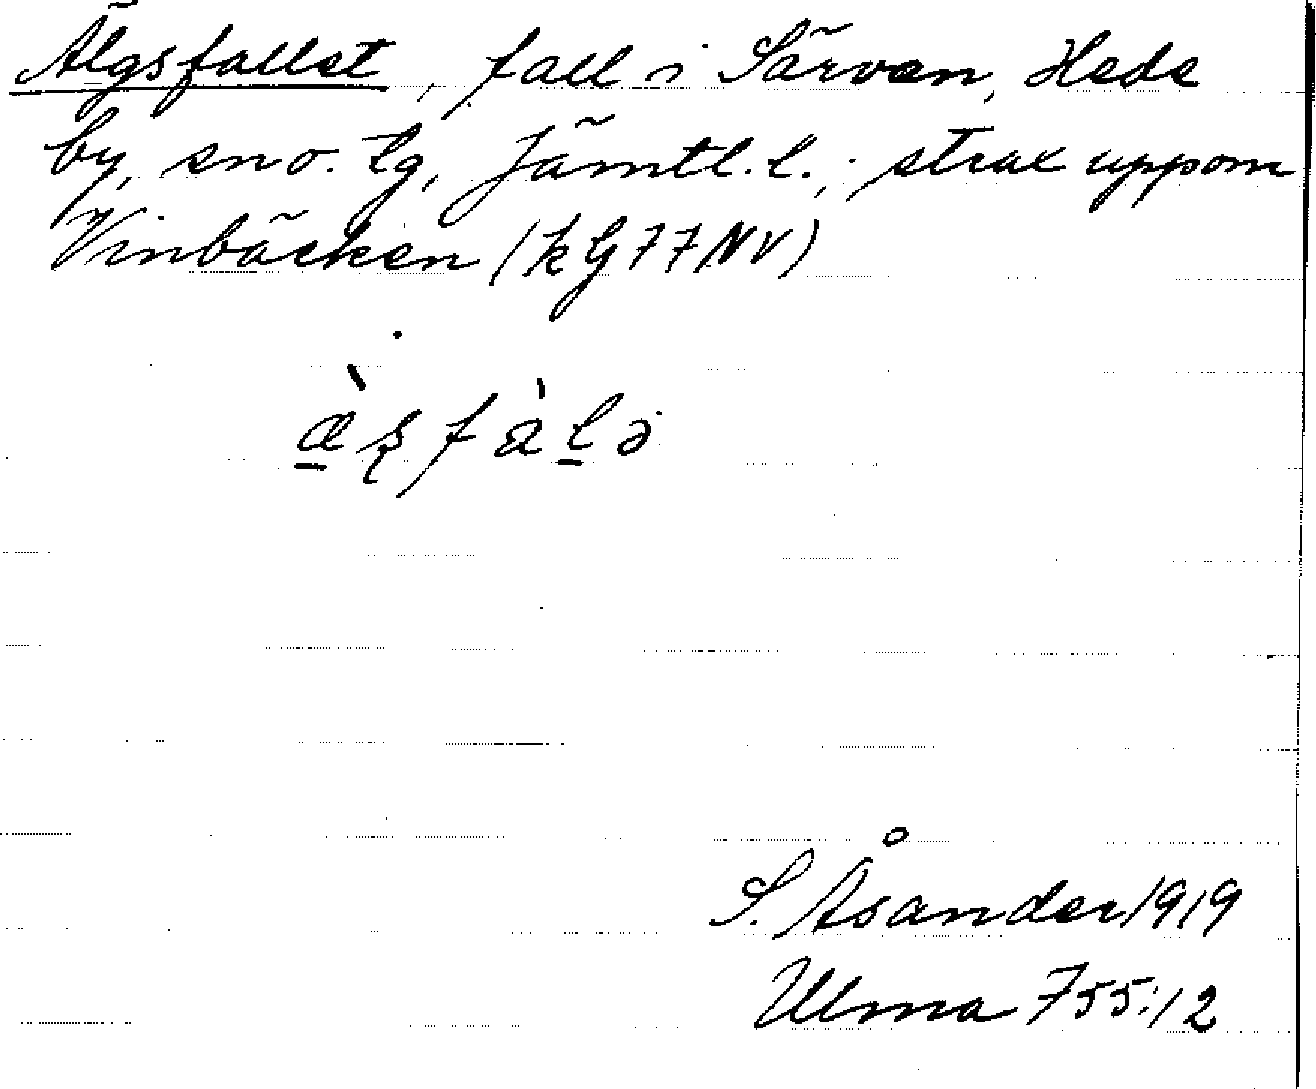 Älgsfallet, fall i Särvan, Hede
by, sno. lg, Jämtl. l.; strax uppom
Vinbäcken (kG77NV)
S. Åsander 1919
Ulma 755:12